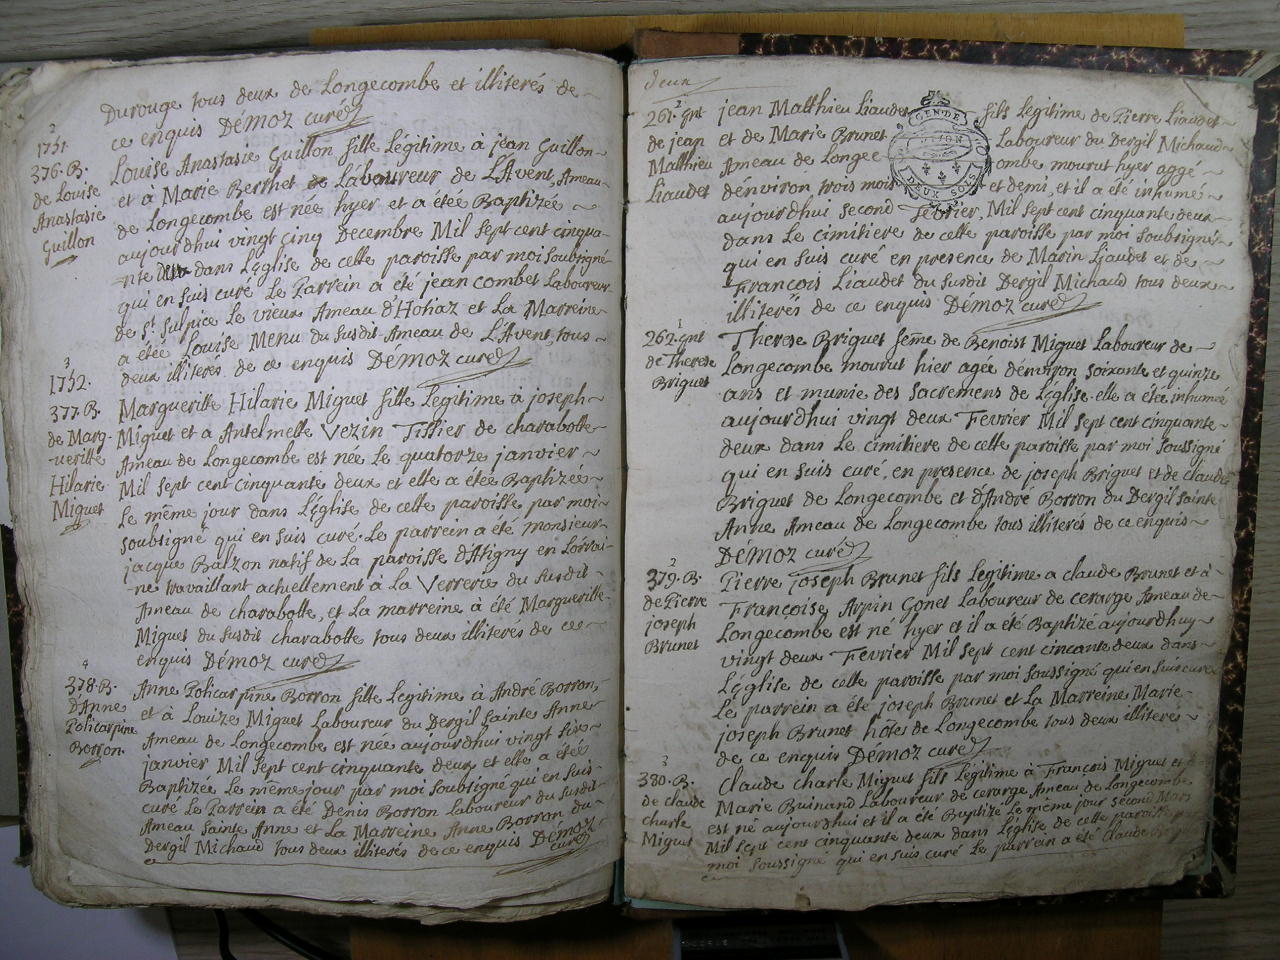 Durouge tous deux de Longecombe et illiterés de
ce enquis Démoz curé
2
1751
376. B.
de Louise
Anastasie
Guillon
Louise Anastasie Guillon fille Légitime à jean Guillon
et à Marie Berthet de Laboureur de L'Avent, Ameau
de Longecombe est née hyer et a étée Baptizée
aujourdhui vingt cinq Decembre Mil sept cent cinqua-
nte dans L'église de cette paroisse par moi soubsigné
qui en suis curé Le Parrein a été jean combet Laboureur
de St. Sulpice Le vieux Ameau d'Hotiaz et La Marreine
a étée Louise Menu du susdit Ameau de L'Avent, tous
deux illiterés de ce enquis Démoz curé
3
1752.
377. B.
de Marg-
ueritte
Hilarie
Miguet
Margueritte Hilarie Miguet fille Légitime a joseph
Miguet et a Antelmette Vezin Tissier de charabotte
Ameau de Longecombe est née Le quatorze janvier
Mil sept cent cinquante deux et elle a étée Baptizée
Le même jour dans L'église de cette paroisse par moi
soubsigné qui en suis curé. Le parrein a été monsieur
jacque Balzon natif de La paroisse d'Atigny en Lorrai-
ne travaillant actuellement à La Verrerie du susdit
Ameau de charabotte, et La marreine à été Margueritte
Miguet du susdit charabotte tous deux illiterés de ce
enquis Démoz curé
4
378. B.
d'Anne
Policarpine
Borron.
Anne Policarpine Borron fille Legitime à André Borron,
et à Louize Miguet Laboureur du Dergil Sainte Anne
Ameau de Longecombe est née aujourdhui vingt sixe
janvier Mil sept cent cinquante deux et elle a étée
Baptizée Le même jour par moi soubsigné qui en suis
curé Le Parrein a été Denis Borron Laboureur du susdit
Ameau Sainte Anne et La Marreine Anne Borron du
Dergil Michaud tous deux illiterés de ce enquis Démoz
curé
deux
2
261. ent
de jean
Matthieu
Liaudet
jean Matthieu Liaudet fils Légitime de Pierre Liaudet
et de Marie Brunet Laboureur du Dergil Michaud
Ameau de Longecombe mourut hyer aggé
d'environ trois mois et demi, et il a été inhumé
aujourdhui second fevrier, Mil sept cent cinquante deux
dans Le cimitiere de cette paroisse par moi soubsigné
qui en suis curé en presence de Marin Liaudet et de
François Liaudet du susdit Dergil Michaud tous deux
illiterés de ce enquis Démoz curé
GEN. DE
DEUX SOLS
1
262. ent
de Therese
Briguet
Therese Briguet feme de Benoist Miguet Laboureur de
Longecombe mourut hier agée d'environ soixante et quinze
ans et munie des sacremens de L'église elle a étée inhumée
aujourdhui vingt deux Fevrier Mil sept cent cinquante
deux dans Le cimitiere de cette paroisse par moi soussigné
qui en suis curé, en presence de joseph Briguet et de claude
Briguet de Longecombe et d'André Borron du Dergil Sainte
Anne Ameau de Longecombe tous illiterés de ce enquis
Démoz curé
2
379. B.
de Pierre
joseph
Brunet
Pierre joseph Brunet fils Légitime a claude Brunet et à
Françoise Arpin Gonet Laboureur de cerarge Ameau de
Longecombe est né hyer et il a été Baptizé aujourdhuy
vingt deux Fevrier Mil sept cent cincante deux dans
L'église de cette paroisse par moi soussigné qui en suis curé
Le parrein a été joseph Brunet et La Marreine Marie
joseph Brunet hôtes de Longecombe tous deux illiteres
de ce enquis Démoz curé
3
380. B.
de claude
charle
Miguet
Claude charle Miguet fils Légitime à François Miguet et
Marie Buinand Laboureur de cerarge Ameau de Longecombe
est né aujourdhui et il a été Baptizé Le même jour second Mars
Mil sept cent cinquante deux dans L'église de cette paroisse
moi soussigné qui en suis curé Le parrein a été claude